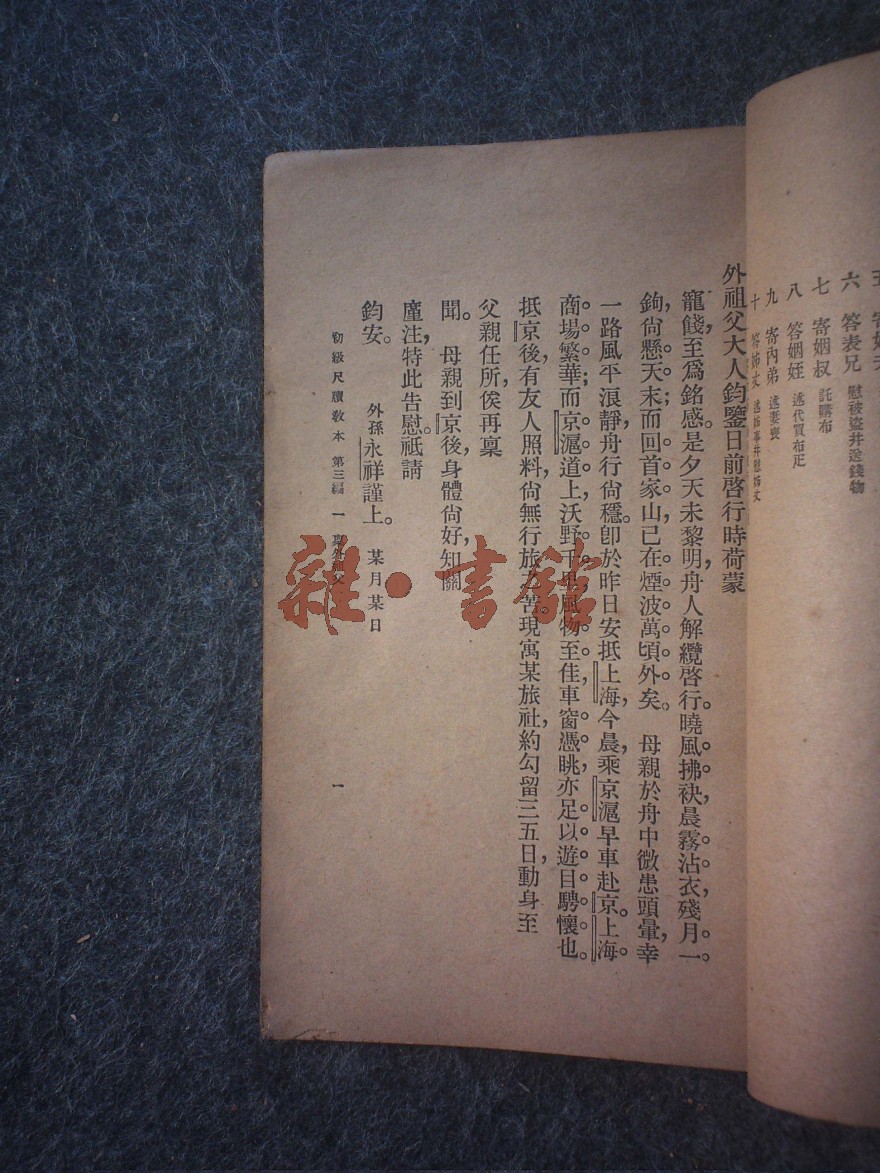 六 答表兄 慰被盜幷送錢物
七 寄姻叔 託購布
八 答姻姪 述代買布疋
九 寄內弟 述妻喪
十 答姊丈
外祖父大人鈞鑒日前啓行時荷蒙
寵餞,至爲銘感。是夕天未黎明,舟人解纜啓行。曉風拂袂,晨霧沾衣,殘月一
鉤,尙懸天末;而回首家山,已在煙波萬頃外矣。 母親於舟中微患頭暈,幸
一路風平浪靜,舟行尙穩。卽於昨日安抵上海,今晨乘京滬早車赴京。上海
商場繁華;而京滬道上,沃野千里,風物至佳,車窗憑眺,亦足以遊目騁懷也。
抵京後,有友人照料,尙無行旅之苦。現寓某旅社,約勾留三五日,動身至
父親任所,俟再稟
聞。 母親到京後,身體尙好,知關
廑注,特此告慰。祗請
鈞安。 外孫永祥謹上。 某月某日
初級尺牘敎本 第三編 一 稟外祖父 一
雜·書館